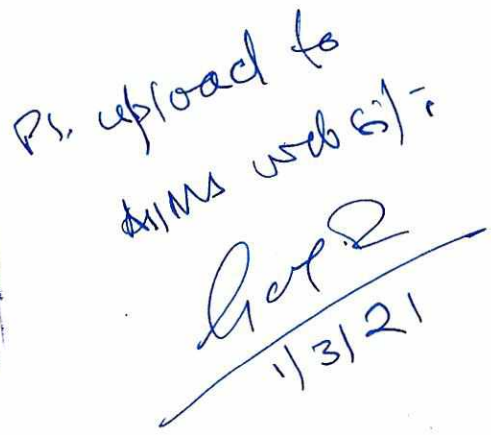 Pl. upload to
AIIMS website
1/3/21